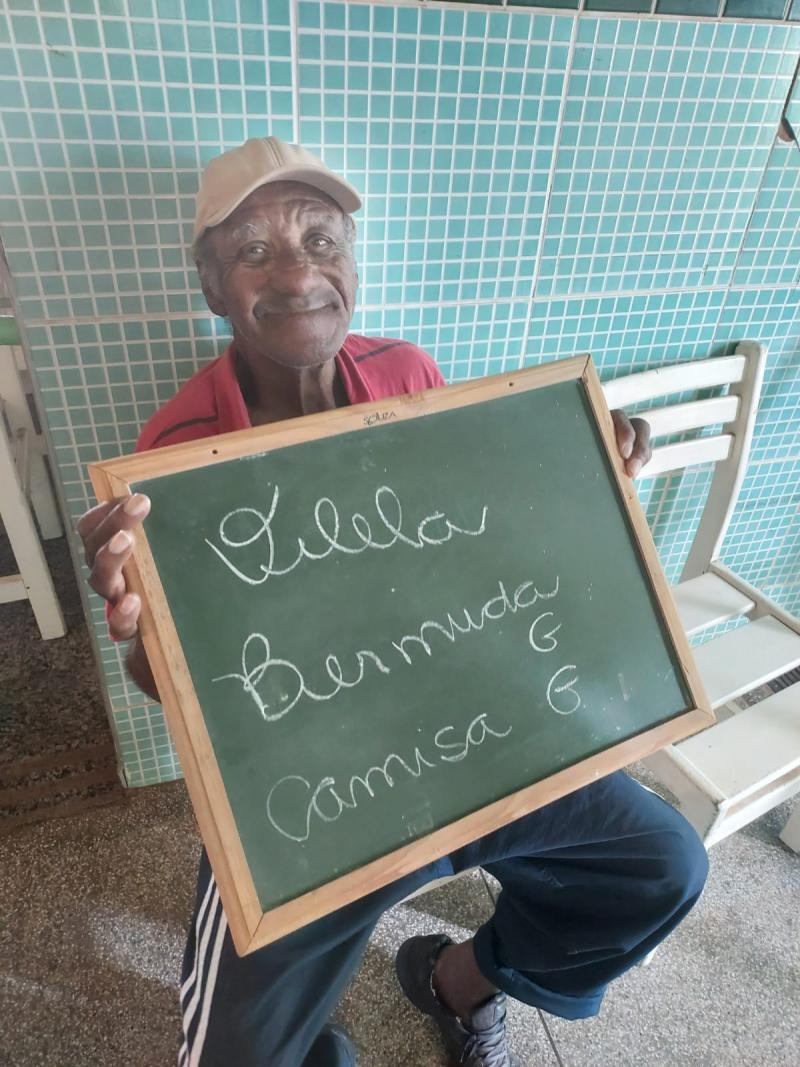 SOUZA
Vilela
Bermuda
G
Camisa G